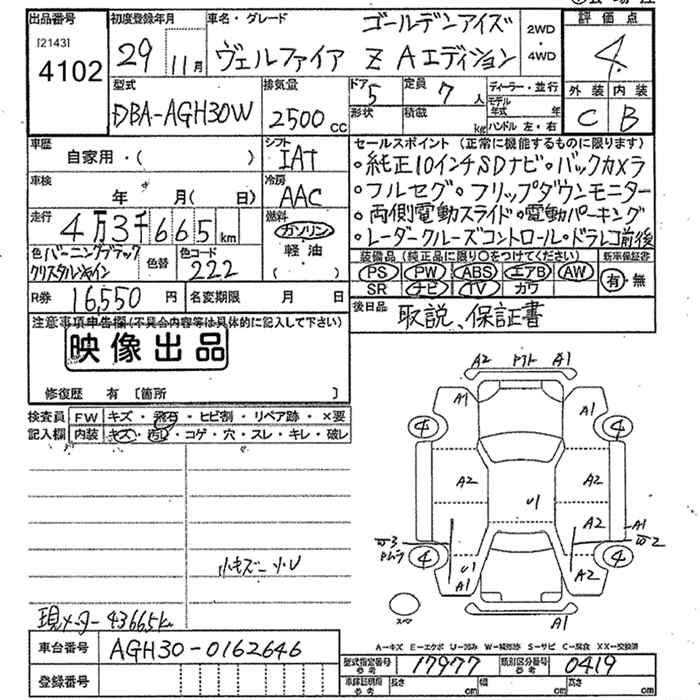 出品番号
[2143]
4102
初度登録年月
29 11月
車名・グレード
ゴールデンアイズ
ヴェルファイア Z Aエディション
2WD
・
4WD
評価点
4
外装 内装
C B
型式
DBA-AGH30W
排気量
2500cc
ドア
5
形状
定員
7人
積載
kg
ディーラー・並行
モデル
年式 年
ハンドル 左・右
車歴
自家用・( )
シフト
IAT
車検
年 月( 日)
冷房
AAC
走行
4万3千665km
燃料
ガソリン
軽油
( )
色 バーニングブラック
クリスタルシャイン
色替
色コード
222
R券 16,550円
名変期限 月 日
セールスポイント (正常に機能するものに限ります)
・純正10インチSDナビ・バックカメラ
・フルセグ・フリップダウンモニター
・両側電動スライド・電動パーキング
・レーダークルーズコントロール・ドラレコ前後
装備品 (純正品に限り○をつけてください)
PS PW ABS エアB AW
SR ナビ TV カワ
新車保証書
有・無
後日品 取説、保証書
注意事項申告欄(不具合内容等は具体的に記入して下さい)
映像出品
修復歴 有 〔箇所 〕
検査員
記入欄
FW キズ・飛石・ヒビ割・リペア跡・×要
内装 キズ・汚れ・コゲ・穴・スレ・キレ・破レ
小キズ 小U
現メーター 43665km
A2 A1
A1 A1
4 4
A2 A2
U1 A2
A1
W3 W2
4 4
U1
A1 A2
A1
A-キズ E-エクボ U-凹み W-補修跡 S-サビ C-腐食 XX-交換済
車台番号 AGH30-0162646
登録番号
型式指定番号 17977
類別区分番号 0419
車庫証明用
参考
長さ cm 幅 cm 高さ cm